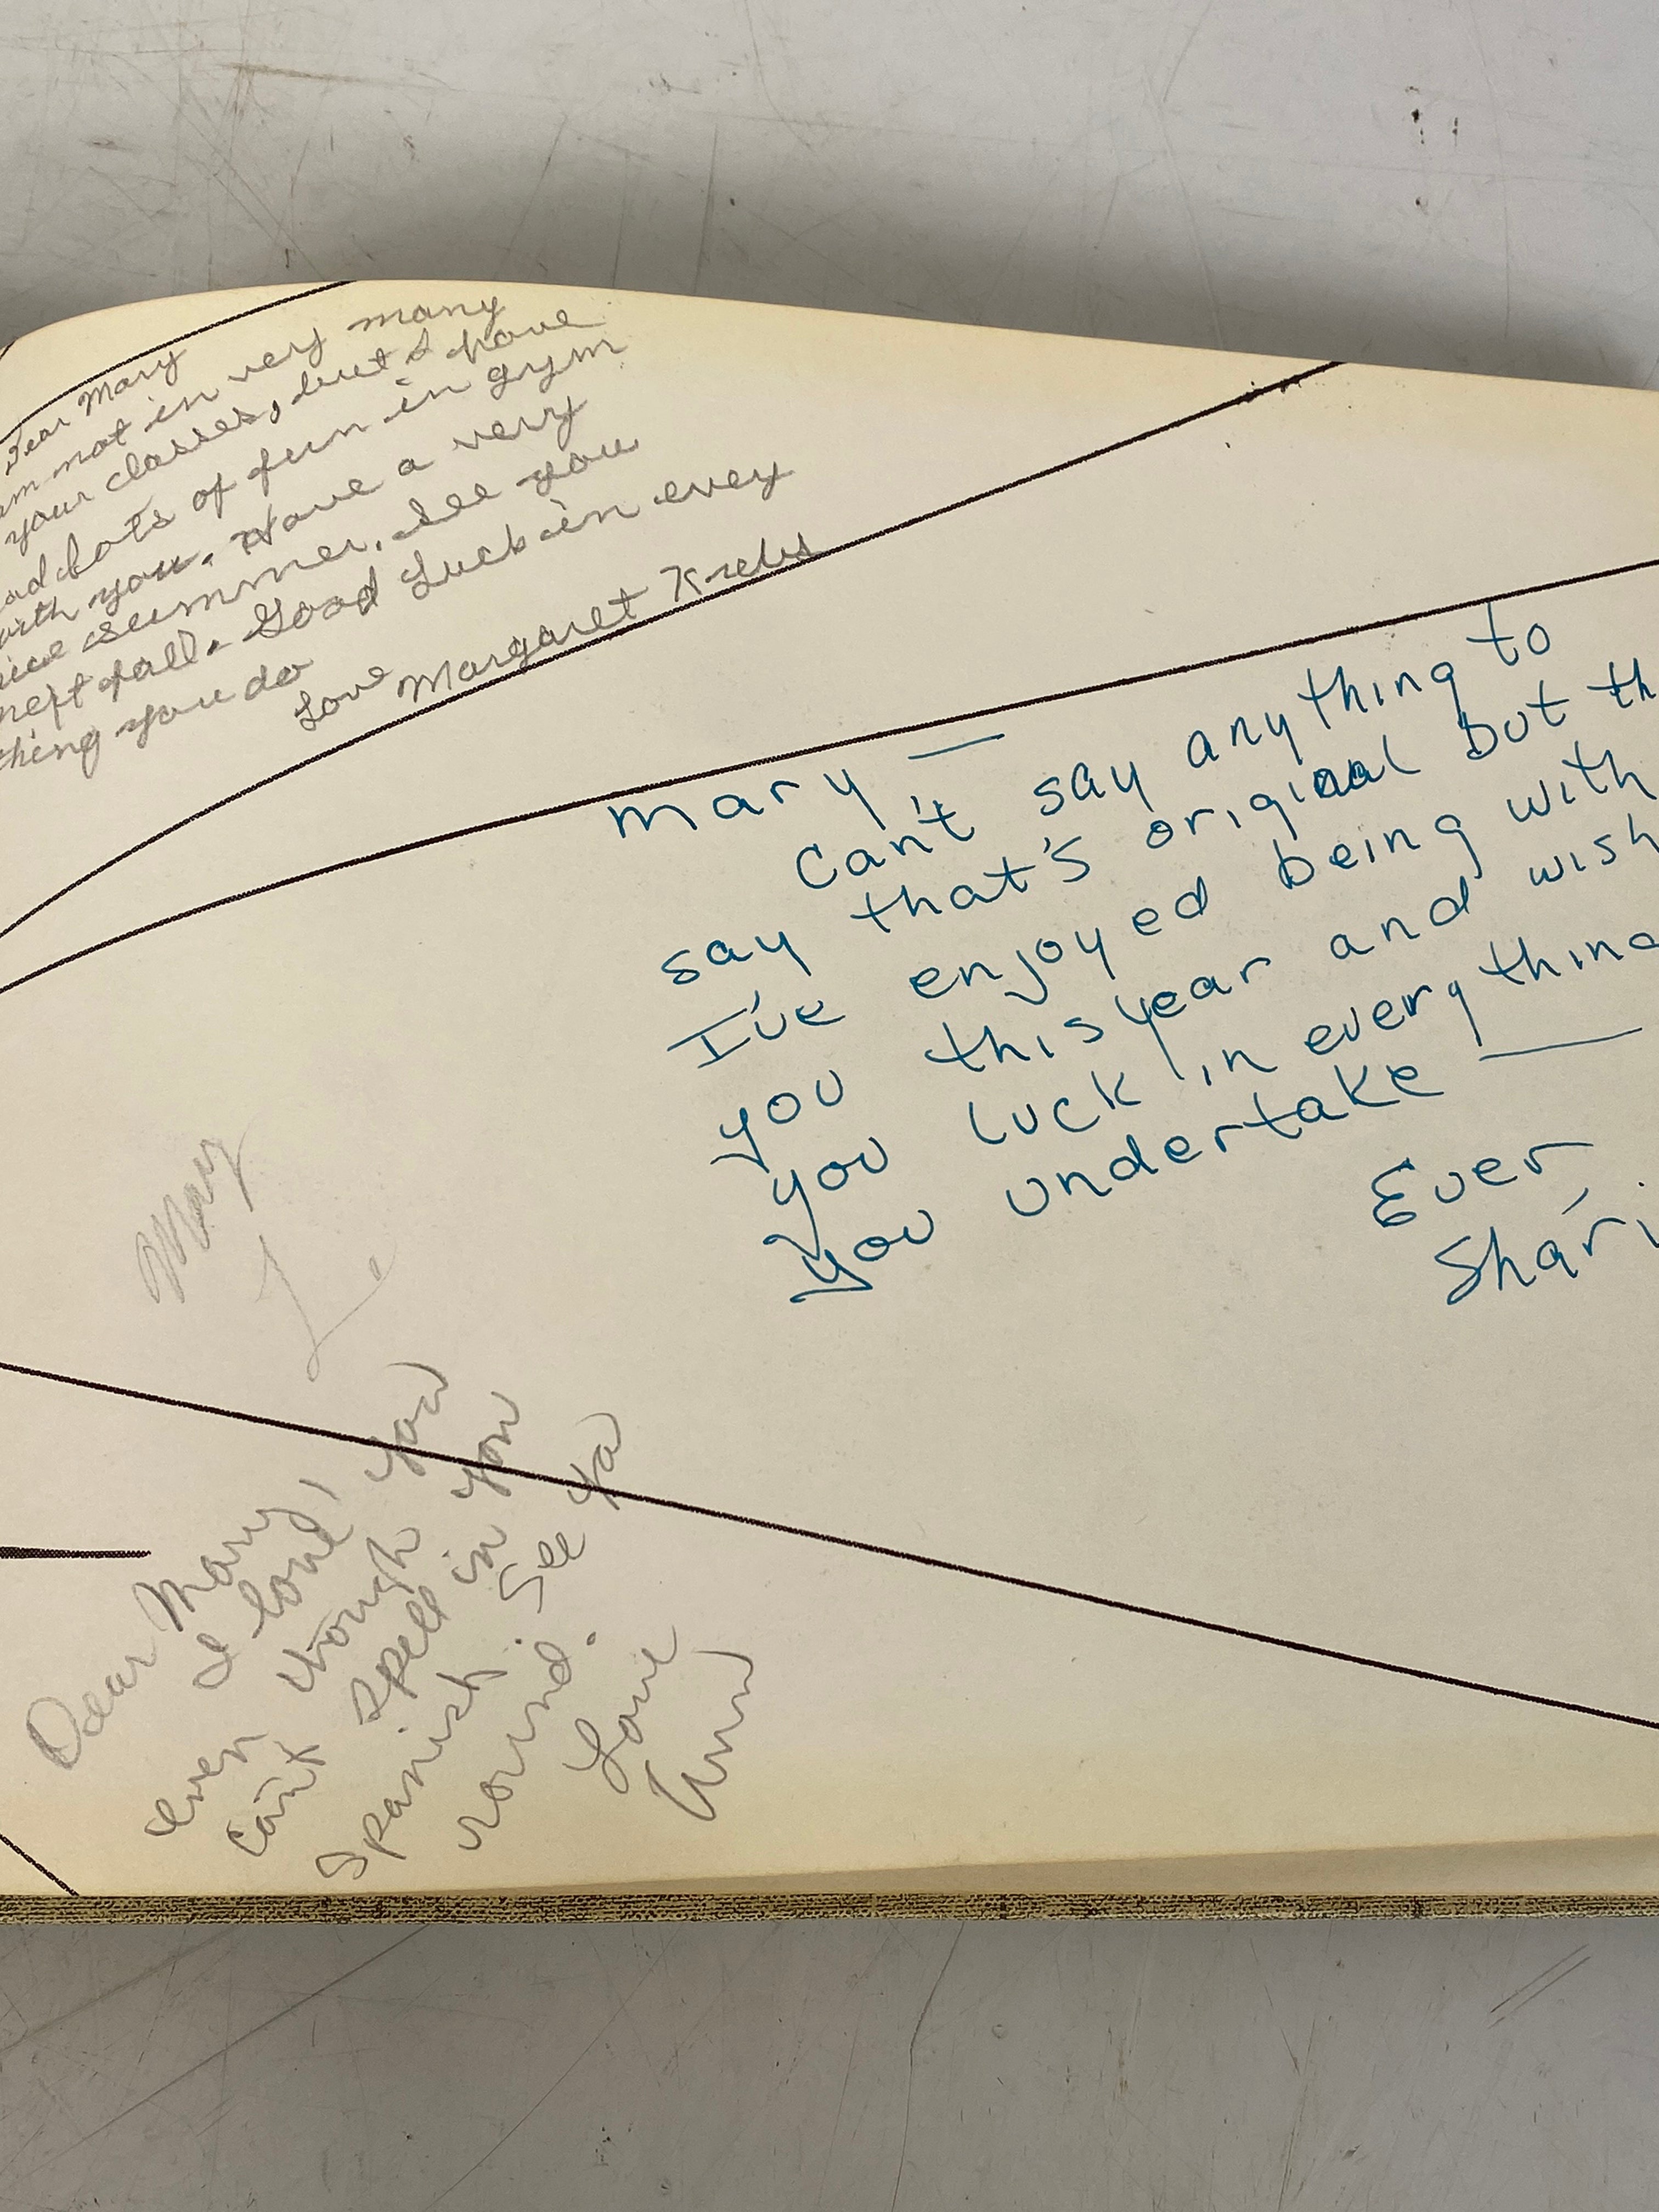 Dear Mary
am not in very many
your classes, but I have
had lots of fun in gym
with you. Have a very
nice summer. See you
next fall. Good Luck in evey
thing you do
Love Margaret Krebs
Mary —
Can't say anything to
say that's original but th
I've enjoyed being with
you this year and wish
you luck in everything
you undertake —
Ever
Shari
Mary
L.
Dear Mary,
I love you
even though you
can't spell in
Spanish. See ya
round.
Love
Ann